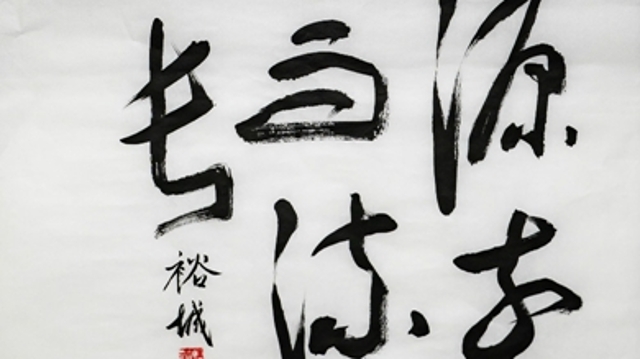 源远
流
长
裕城